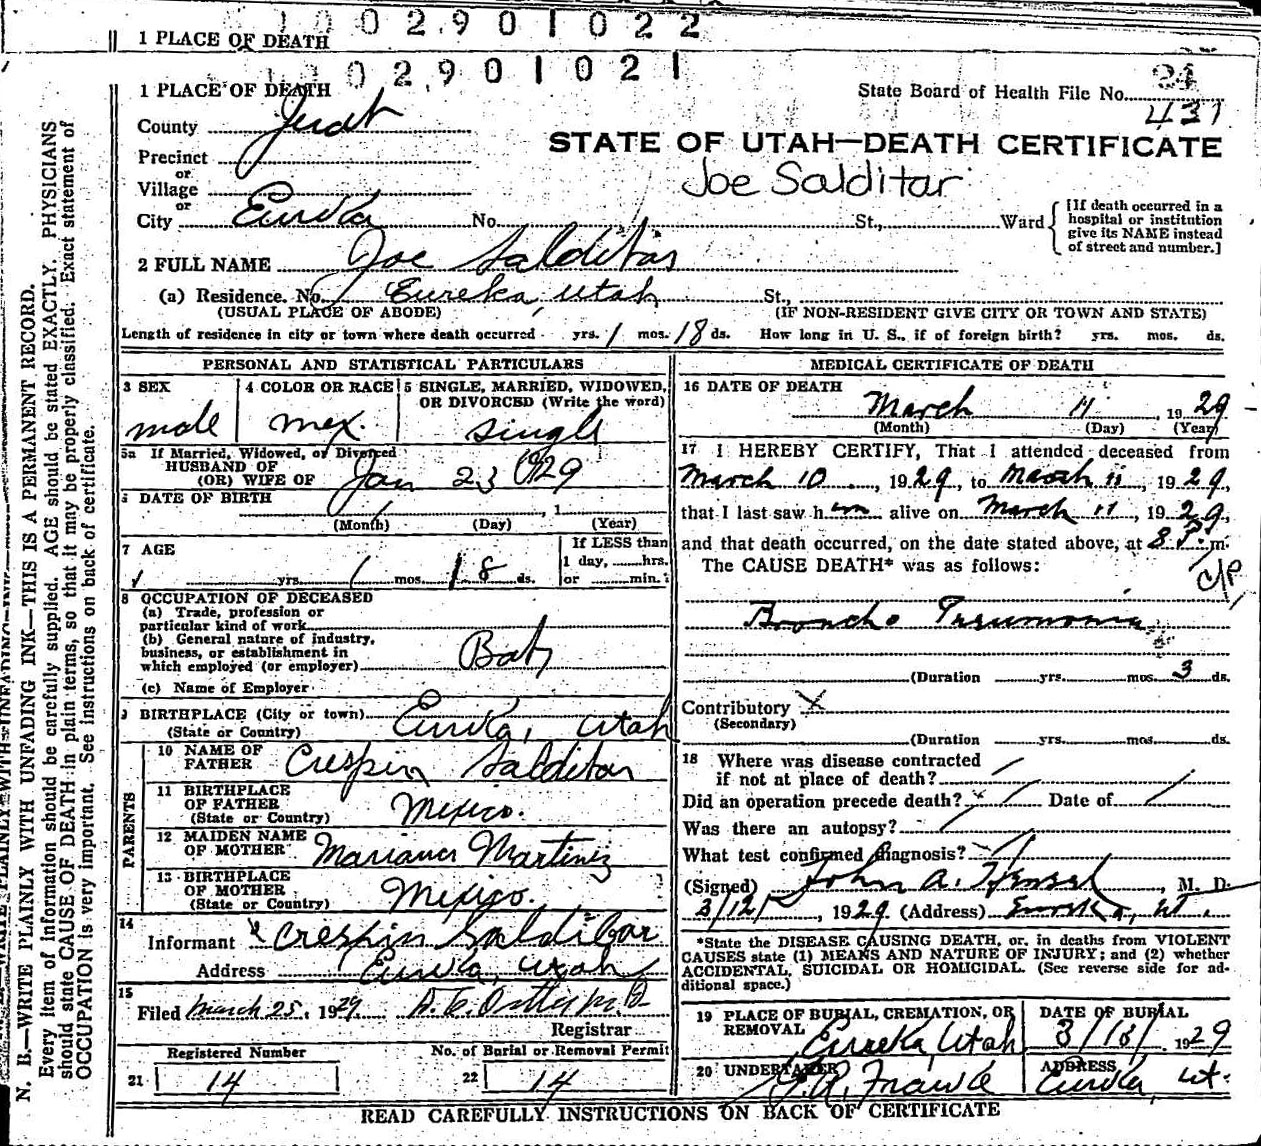 1002901022
1 PLACE OF DEATH
1002901021
1 PLACE OF DEATH
State Board of Health File No. 24
431
County Juab
STATE OF UTAH—DEATH CERTIFICATE
Precinct
or
Village
Joe Salditar
or
City Eureka No. St., Ward
[If death occurred in a
hospital or institution
give its NAME instead
of street and number.]
2 FULL NAME Joe Salditar
(a) Residence. No. Eureka, Utah St.,
(USUAL PLACE OF ABODE) (IF NON-RESIDENT GIVE CITY OR TOWN AND STATE)
Length of residence in city or town where death occurred yrs. 1 mos. 18 ds. How long in U. S., if of foreign birth? yrs. mos. ds.
PERSONAL AND STATISTICAL PARTICULARS
3 SEX 4 COLOR OR RACE 5 SINGLE, MARRIED, WIDOWED,
OR DIVORCED (Write the word)
male mex. single
5a If Married, Widowed, or Divorced
HUSBAND OF
(OR) WIFE OF
Jan 23 1929
6 DATE OF BIRTH , 1
(Month) (Day) (Year)
7 AGE If LESS than
1 day, hrs.
yrs. 1 mos. 18 ds. or min.
8 OCCUPATION OF DECEASED
(a) Trade, profession or
particular kind of work
(b) General nature of industry,
business, or establishment in
which employed (or employer) Baby
(c) Name of Employer
9 BIRTHPLACE (City or town) Eureka, Utah
(State or Country)
PARENTS
10 NAME OF
FATHER Crespin Salditar
11 BIRTHPLACE
OF FATHER
(State or Country) Mexico.
12 MAIDEN NAME
OF MOTHER Mariana Martinez
13 BIRTHPLACE
OF MOTHER
(State or Country) Mexico.
14
Informant Crespin Saldibar
Address Eureka, Utah
15
Filed March 25, 1929
Registrar
Registered Number No. of Burial or Removal Permit
21 14 22 14
MEDICAL CERTIFICATE OF DEATH
16 DATE OF DEATH
March 11, 1929
(Month) (Day) (Year)
17 I HEREBY CERTIFY, That I attended deceased from
March 10, 1929, to March 11, 1929,
that I last saw him alive on March 11, 1929,
and that death occurred, on the date stated above, at 8 P. m.
The CAUSE DEATH* was as follows:
Broncho Pneumonia
(Duration yrs. mos. 3 ds.
Contributory X
(Secondary)
(Duration yrs. mos. ds.
18 Where was disease contracted
if not at place of death?
Did an operation precede death? Date of
Was there an autopsy?
What test confirmed diagnosis?
(Signed) John A. Hensel, M. D.
3/12/, 1929 (Address) Eureka, Ut.
*State the DISEASE CAUSING DEATH, or, in deaths from VIOLENT
CAUSES state (1) MEANS AND NATURE OF INJURY; and (2) whether
ACCIDENTAL, SUICIDAL OR HOMICIDAL. (See reverse side for ad-
ditional space.)
19 PLACE OF BURIAL, CREMATION, OR
REMOVAL Eureka, Utah
DATE OF BURIAL
3/13/ 1929
20 UNDERTAKER ADDRESS
Eureka, Ut.
READ CAREFULLY INSTRUCTIONS ON BACK OF CERTIFICATE
N. B.—WRITE PLAINLY WITH UNFADING INK—THIS IS A PERMANENT RECORD.
Every item of information should be carefully supplied. AGE should be stated EXACTLY. PHYSICIANS
should state CAUSE OF DEATH in plain terms, so that it may be properly classified. Exact statement of
OCCUPATION is very important. See instructions on back of certificate.